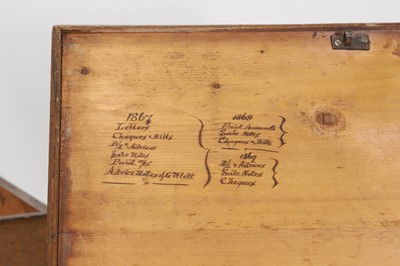 1867
Letters
Cheques & Bills
B/s & Advices
Sale Notes
Paid
Advice Notes
1868
Paid Accounts
Sale Notes
Cheques & Bills
1869
B/s & Advices
Sale Notes
Cheques